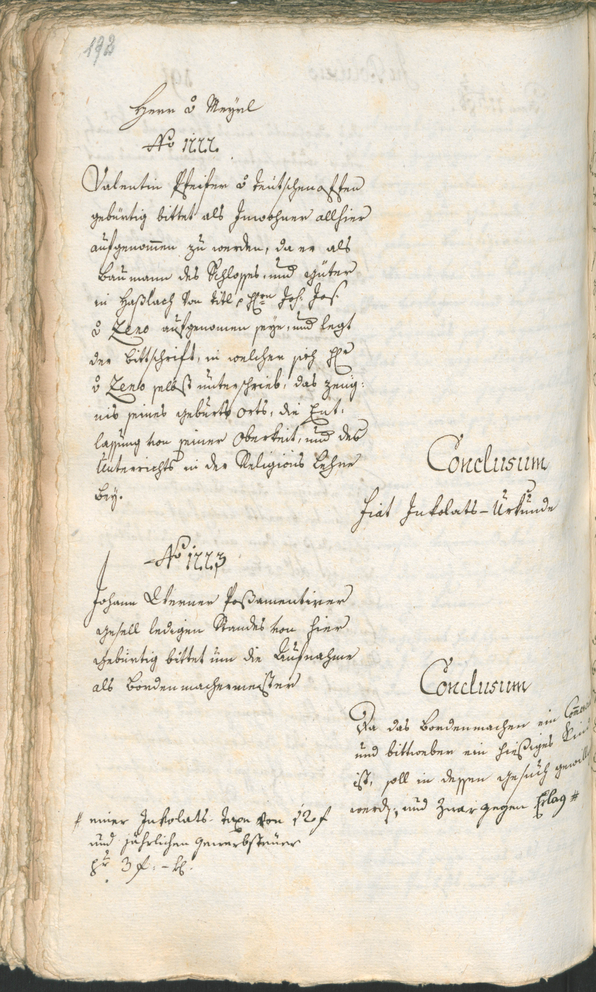 192
Herr v Meyrl
No 1222.
Valentin Pfeifer v deutschenofen
gebürtig bittet als Inwohner allhier
aufgenommen zu werden, da er als
Baumann des Schlosses, und Güter
in Haßlach von titl. Hrn Joh. Jos.
v Zeno aufgenomen seye, und legt
der Bittschrift, in welcher sich Hr
v Zeno selbst unterschrieb, das Zeug:
nis seines Geburts Orts, die Ent:
lassung von seiner Oberkeit, und des
Unterrichts in der Religions Lehre
bey.
Conclusum
fiat Inkolats-Urkunde
No 1223
Johann Ebenner Posamentirer
gesell ledigen Standes von hier
gebürtig bittet um die Aufnahme
als Bordenmachermeister
Conclusum
Da das Bordenmachen ein
und Bittwerber ein hiesiges Kind
ist, soll in dessen Gesuch gewilli
werden, und zwar gegen Erlag #
# einer Inkolats-Taxe von 12 f
und jährlichen Gewerbsteuer
pr 3 f. - kr.